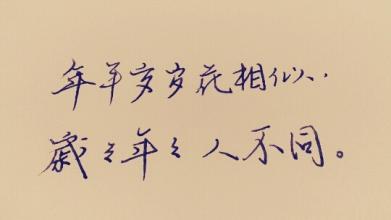 年年岁岁花相似..
歲々年々人不同。